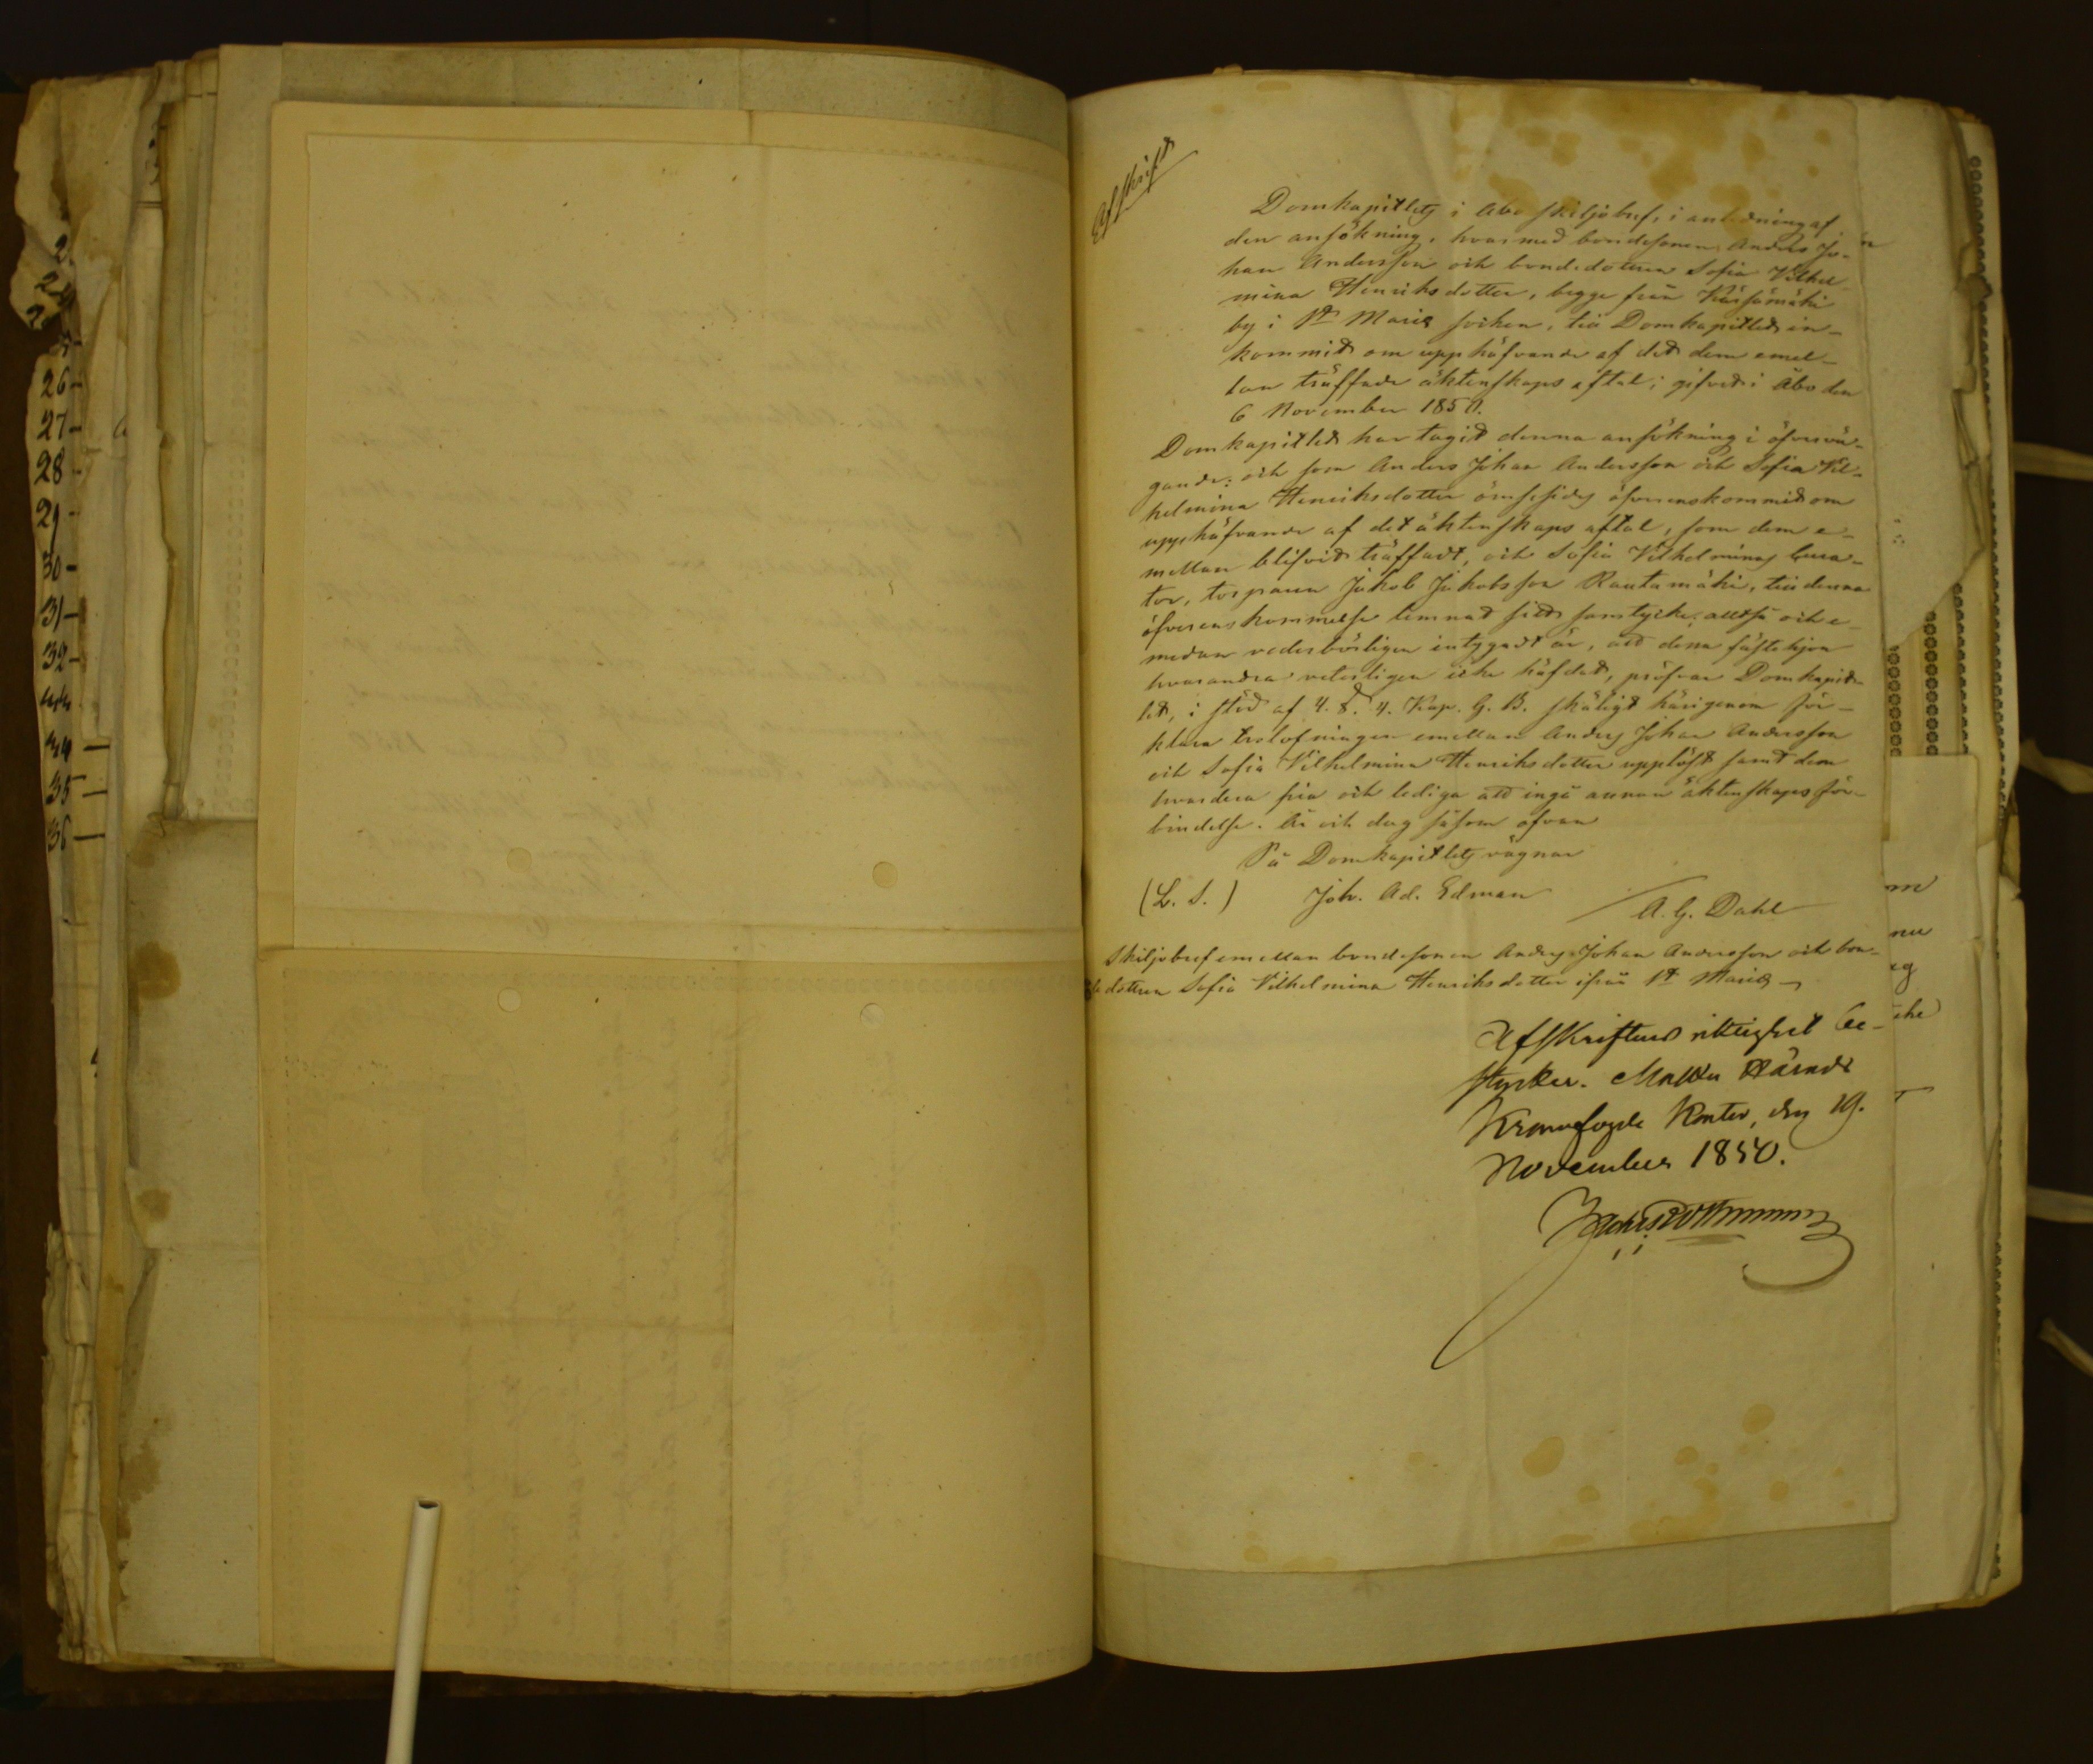 Afskrift
Domkapitlets i Åbo skiljobref, i anledning af
den ansökning, hvarmed bondesonen Anders Jo-
han Andersson och bondedottren Sofia Vilhel-
mina Henriksdotter, begge från Kärsämäki
by i St Marie socken, till Domkapitlet in-
kommit om upphäfvande af det dem emel-
lan träffade äktenskaps aftal; gifvet i Åbo den
6 November 1850.
Domkapitlet har tagit denna ansökning i öfvervä-
gande: och som Anders Johan Andersson och Sofia Vil-
helmina Henriksdotter ömsesides öfverenskommit om
upphäfvande af det äktenskaps aftal, som dem e-
mellan blifvit träffadt, och Sofia Vilhelminas Cura-
tor, torparen Jakob Jakobsson Rautamäki, till denna
öfverenskommelse lemnat sitt samtycke, alltså och e-
medan vederbörligen intygadt är, att dessa fästehjon
hvarandra veterligen icke häfdat, pröfvar Domkapit-
let, i stöd af 4. §. 4. Kap. G. B. skäligt härigenom för-
klara trolofningen emellan Anders Johan Andersson
och Sofia Vilhelmina Henriksdotter upplöst samt dem
hvardera fria och lediga att ingå annan äktenskaps för-
bindelse. År och dag såsom ofvan
På Domkapitlets vägnar
(L. S.) Joh. Ad. Edman
A. G. Dahl
Skiljobref emellan bondesonen Anders Johan Andersson och bon-
dedottren Sofia Vilhelmina Henriksdotter ifrån St Marie
Afskriftens riktighet be-
styrker. Masku Härads
Kronofogde Kontor, den 19.
November 1850.
26
27
28
29
30
31
32
34
35
36